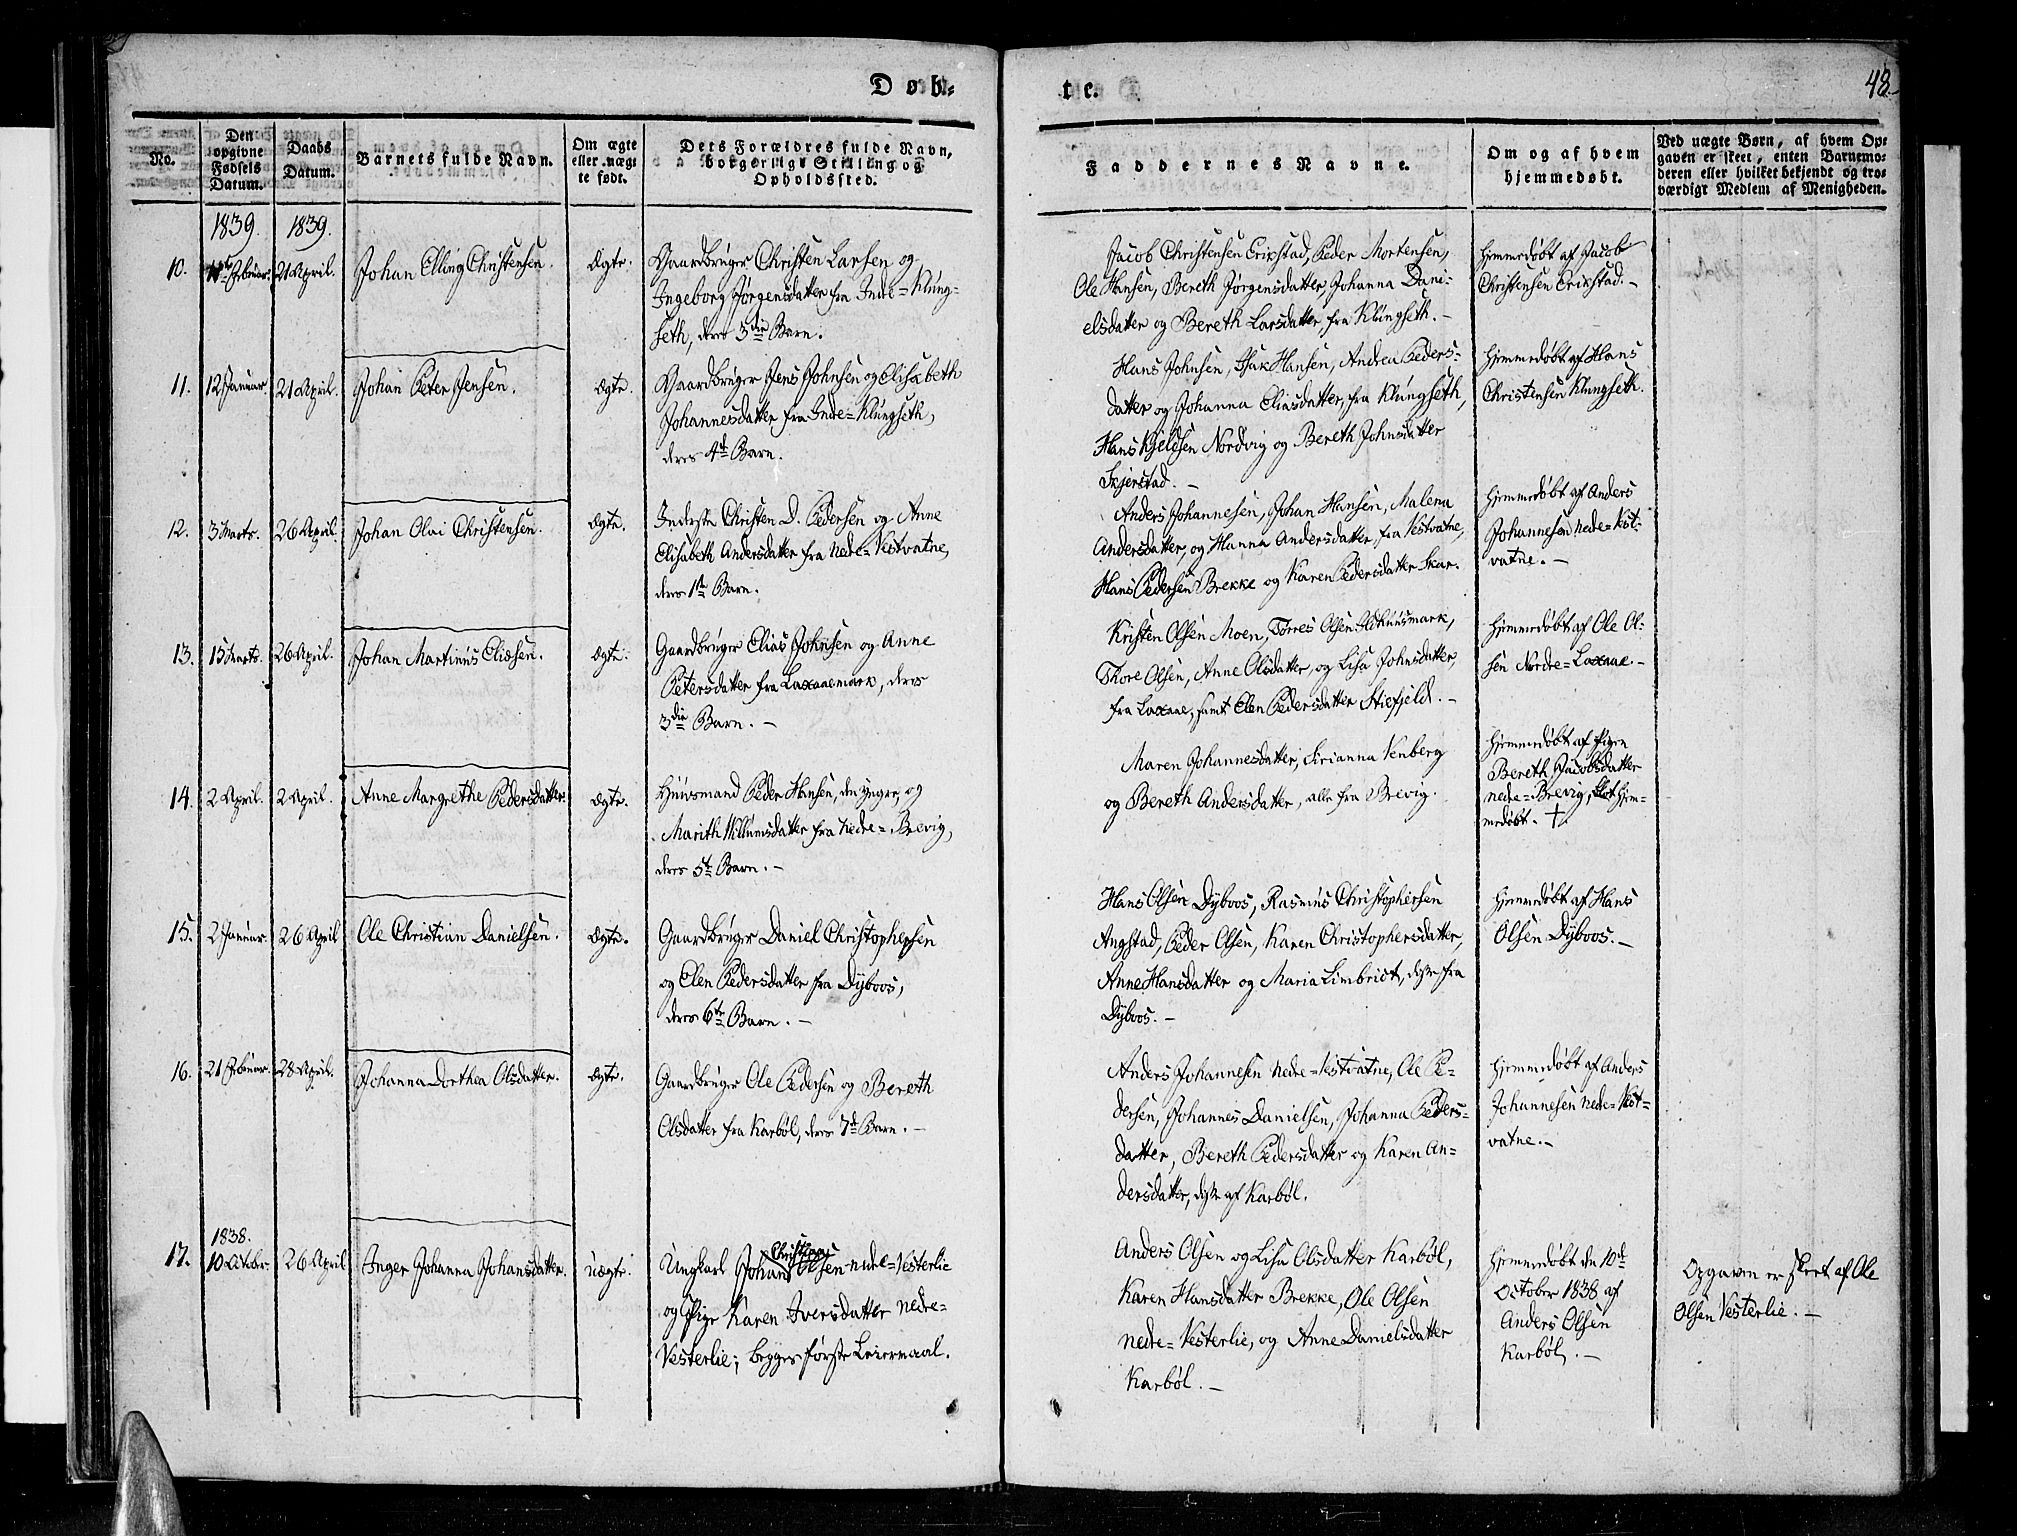 Døb-
te.
48
No.
Den
opgivne
Fødsels
Datum.
Daabs
Datum.
Barnets fulde Navn.
Om ægte
eller uægte
te født.
Dets Forældres fulde Navn,
borgerlige Stilling og
Opholdssted.
Faddernes Navne.
Om og af hvem
hjemmedøbt.
Ved uægte Børn, af hvem Op-
gaven er skeet, enten Barnemo-
deren eller hvilket bekjendt og tro-
værdigt Medlem af Menigheden.
1839.
1839.
10.
Februar.
21 April.
Johan Elling Christensen.
Ægte.
Gaardbruger Christen Larsen og
Ingeborg Jørgensdatter fra Inde=Klung-
seth, deres 3die Barn.
Jacob Christensen Erikstad, Peder Mortensen,
Ole Hansen, Bereth Jørgensdatter, Johanna Dani-
elsdatter og Bereth Larsdatter, fra Klungseth. -
Hjemmedøbt af Jacob
Christensen Erikstad. -
11.
12 Januar.
21 April.
Johan Peter Jensen.
Ægte.
Gaardbruger Jens Johnsen og Elisabeth
Johannesdatter fra Inde=Klungseth,
deres 4de Barn.
Hans Johnsen, Isak Hansen, Andrea Peders-
datter og Johanna Eliasdatter, fra Klungseth,
Hans Kjeldsen Nordvig og Bereth Johnsdatter
Skjerstad. -
Hjemmedøbt af Hans
Christensen Klungseth.
12.
3 Marts.
26 April.
Johan Olai Christensen.
Ægte.
Inderste Christen D. Pedersen og Anne
Elisabeth Andersdatter fra Nedre=Vestvatne,
deres 1ste Barn.
Anders Johannesen, Johan Hansen, Malena
Andersdatter, og Hanna Andersdatter, fra Vestvatne,
Hans Pedersen Brekke og Karen Pedersdatter Skar.
Hjemmedøbt af Anders
Johannesen nedre=Vest-
vatne. -
13.
15 Marts.
26 April.
Johan Martinus Eliesen.
Ægte.
Gaardbruger Elias Johnsen og Anne
Petersdatter fra Laxaaemark, deres
3die Barn. -
Kristen Olsen Moen, Torres Olsen
Thore Olsen, Anne Olsdatter, og Lisa Johnsdatter,
fra Laxaae, samt Elen Pedersdatter Stiefjeld. -
Hjemmedøbt af Ole Ol-
sen Nordre=Laxaae. -
14.
2 April.
2 April.
Anne Margrethe Pedersdatter.
Ægte.
Huusmand Peder Hansen, den yngre, og
Marith Willumsdatter fra nedre=Brevig,
deres 5te Barn. -
Maren Johannesdatter, Sirianna Venberg
og Bereth Andersdatter, alle fra Brevig.
Hjemmedøbt af Pigen
Bereth Jacobsdatter
nedre=Brevig, blot hjem-
medøbt. †
15.
2 Januar.
26 April
Ole Christian Danielsen.
Ægte.
Gaardbruger Daniel Christophersen
og Elen Pedersdatter fra Dybvos,
deres 6te Barn. -
Hans Olsen Dybvos, Rasmus Christophersen
Angstad, Peder Olsen, Karen Christophersdatter,
Anne Hansdatter og Maria Limbridt, fra
Dybvos. -
Hjemmedøbt af Hans
Olsen Dybvos. -
16.
21 Februar.
28 April.
Johanna Dorthea Olsdatter.
Ægte.
Gaardbruger Ole Pedersen og Bereth
Olsdatter fra Karbøl, deres 7de Barn. -
Anders Johannesen nedre=Vestvatne, Ole Pe-
dersen, Johannes Danielsen, Johanna Peders-
datter, Bereth Pedersdatter og Karen An-
dersdatter, af Karbøl.
Hjemmedøbt af Anders
Johannesen nedre=Vest-
vatne. -
17.
1838.
10 October.
26 April
Inger Johanna Johansdatter.
Uægte.
Christian
Ungkarl Johan Olsen nedre=Vesterlie
og Pige Karen Iversdatter nedre-
Vesterlie; begges første Leiermaal.
Anders Olsen og Lisa Olsdatter Karbøl,
Karen Hansdatter Brekke, Ole Olsen
nedre=Vesterlie, og Anne Danielsdatter
Karbøl. -
Hjemmedøbt den 10de
October 1838 af
Anders Olsen
Karbøl. -
Opgaven er skeet af Ole
Olsen Vesterlie. -